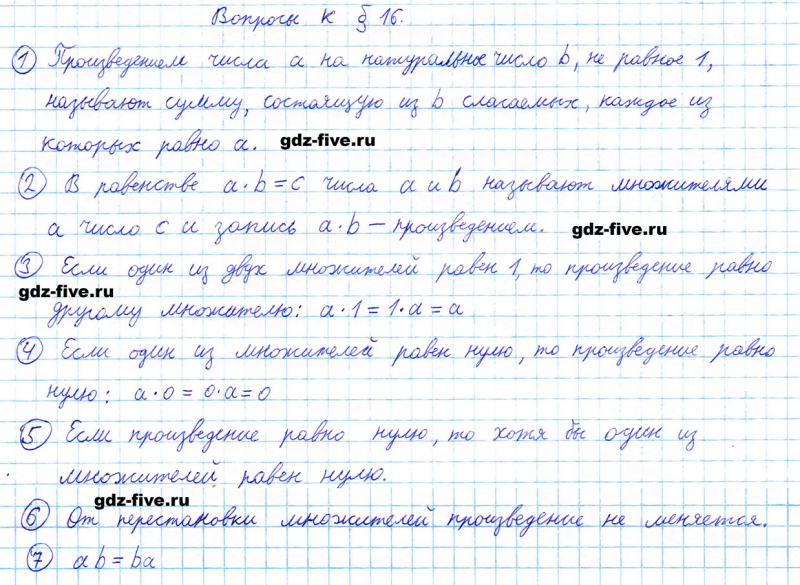 Вопросы к § 16.
① Произведением числа a на натуральное число b, не равное 1,
называют сумму, состоящую из b слагаемых, каждое из
которых равно a. gdz-five.ru
② В равенстве a · b = c числа a и b называют множителями
а число c и запись a · b – произведением. gdz-five.ru
③ Если один из двух множителей равен 1, то произведение равно
gdz-five.ru
другому множителю: a · 1 = 1 · a = a
④ Если один из множителей равен нулю, то произведение равно
нулю: a · 0 = 0 · a = 0
⑤ Если произведение равно нулю, то хотя бы один из
множителей равен нулю.
gdz-five.ru
⑥ От перестановки множителей произведение не меняется.
⑦ ab = ba